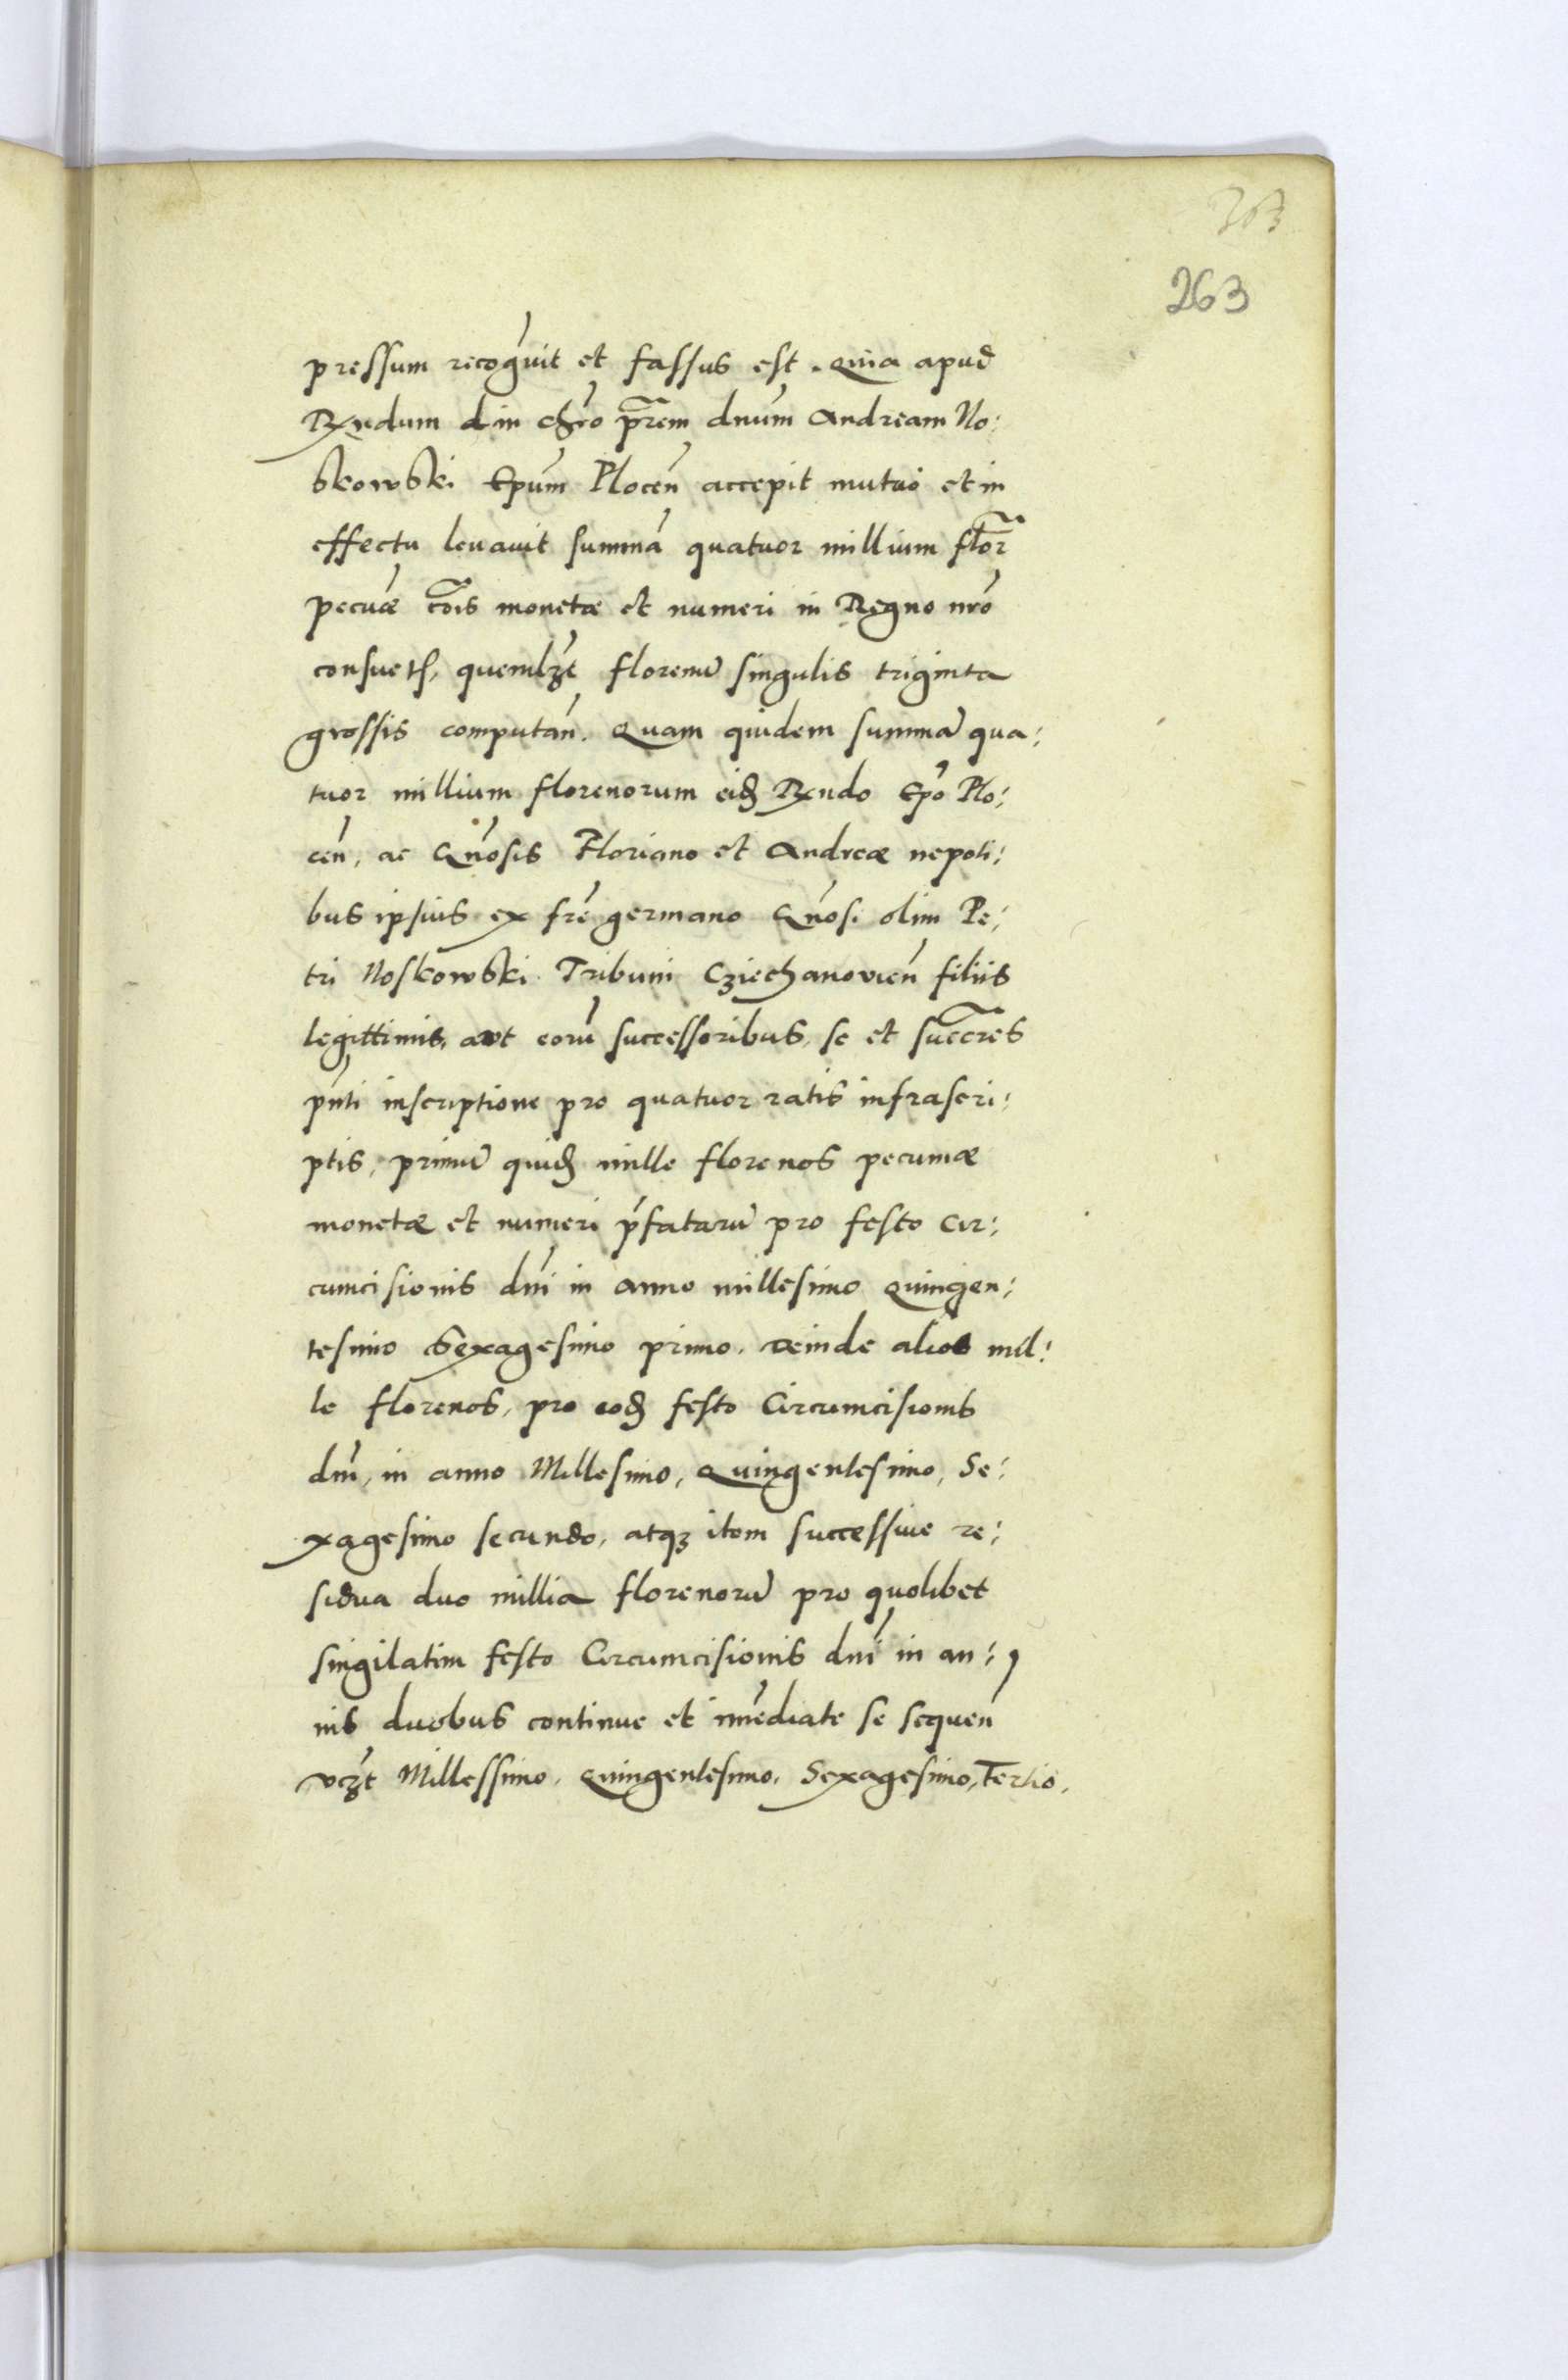 263
263
pressum recog̃uit et fassus est. Quia apud
Rx̃ndum d in chr̃o pr̃em dnũm Andream No:
skowski Ep̃um Plocen̄ accepit mutuo et in
effectu leuauit summā quatuor millium flor̃
pecũæ cõis monetæ et numeri in Regno nr̃o
consuet, quemlʒt florenū singulis triginta
grossis computan̄. Quam quidem summā qua:
tuor millium florenorum eidꝫ Rx̃ndo Ep̃o Plo:
cen̄, ac Gñosis Floriano et Andreæ nepoti:
bus ipsius ex fr̃e germano Gñosi olim Pe:
tri Noskowski Tribuni Cziechanouien̄ filiis
legittimis, aut eorū successoribus, se et succr̃es
pñti inscriptione pro quatuor ratis infrascri:
ptis, primū quidꝫ mille florenos pecuniæ
monetæ et numeri p̃fatarū pro festo Cir:
cumcisionis dnī in anno millesimo quingen:
tesimo Sexagesimo primo. deinde alios mil:
le florenos, pro eodꝫ festo Circumcisionis
dnī, in anno Millesimo, Quingentesimo, Se:
xagesimo secundo, atqꝫ item successiue re:
sidua duo millia florenorū pro quolibet
singilatim festo Circumcisionis dnī in an:
nis duobus continue et imēdiate se sequen̄
vczt Millessimo, Quingentesimo, Sexagesimo, Tertio,